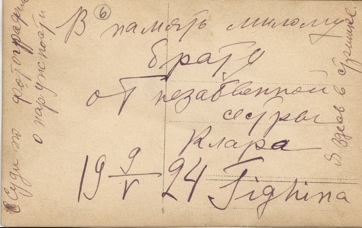 В память милому
брату
от незабвенной
сестры
Клара
19 9/V 24 Tighina
Суди по фотографии
о наружности
6